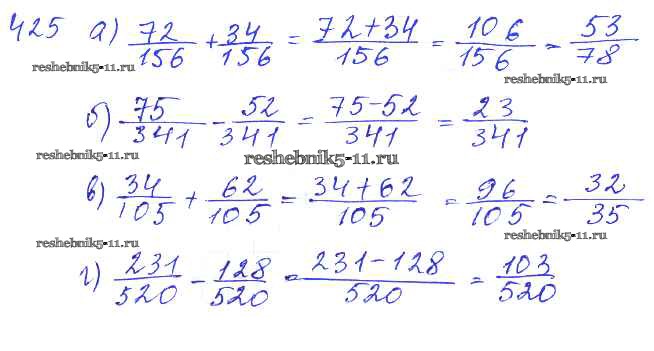 425 а) 72/156 + 34/156 = 72+34/156 = 106/156 = 53/78
reshebnik5-11.ru
reshebnik5-11.ru
б) 75/341 - 52/341 = 75-52/341 = 23/341
reshebnik5-11.ru
reshebnik5-11.ru
в) 34/105 + 62/105 = 34+62/105 = 96/105 = 32/35
reshebnik5-11.ru
reshebnik5-11.ru
г) 231/520 - 128/520 = 231-128/520 = 103/520